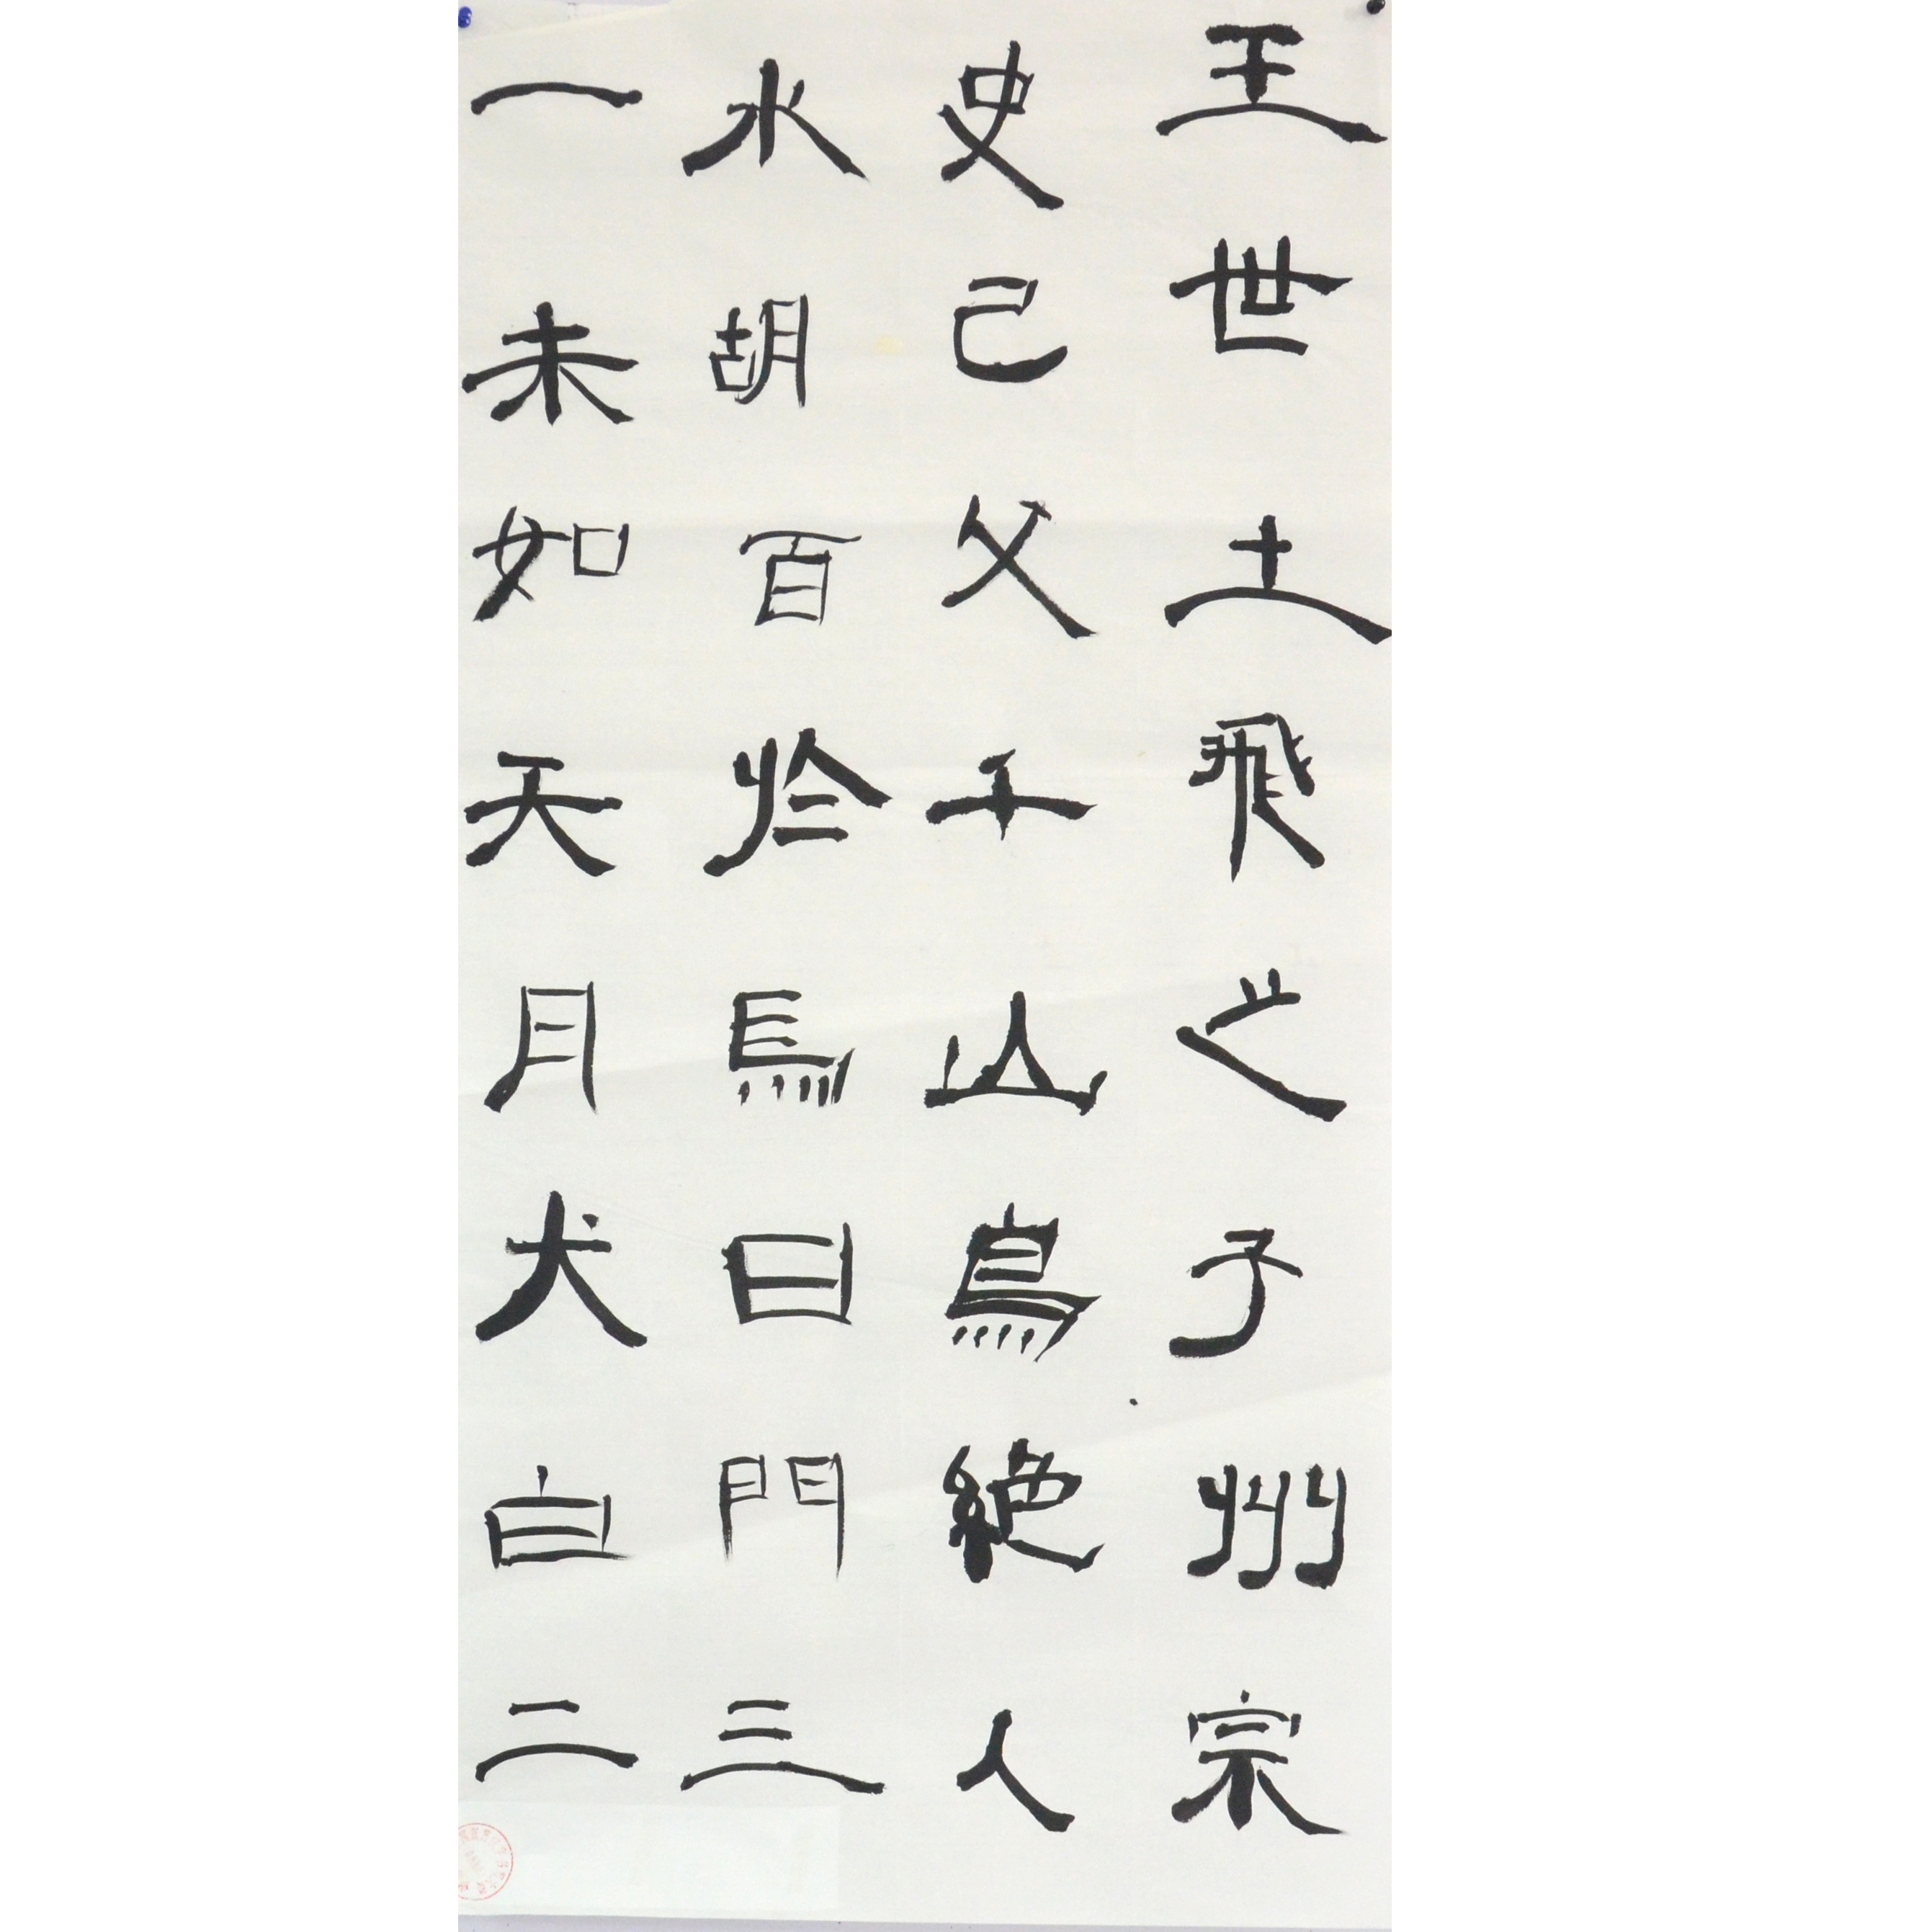 王世土飛之子州宗
史己父千山鳥絶人
水胡百於烏曰門三
一未如天月犬白二